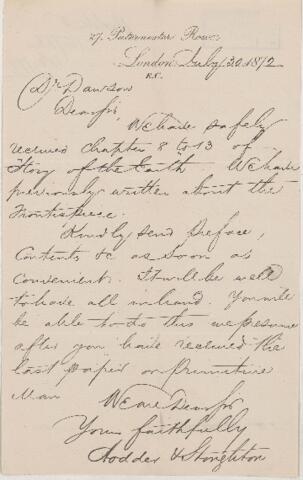 27, Paternoster Row,
London, July 30 1872
E.C.
Dr Dawson
Dear Sir,
We have safely
received Chapter 8 to 13 of
Story of the Earth. We have
previously written about the
Frontispiece.
Kindly send Preface,
Contents &c as soon as
convenient. It will be well
to have all in hand. You will
be able to do this we presume
after you have received the
last paper on Primitive
Man
We are Dear Sir
Yours faithfully
Hodder & Stoughton